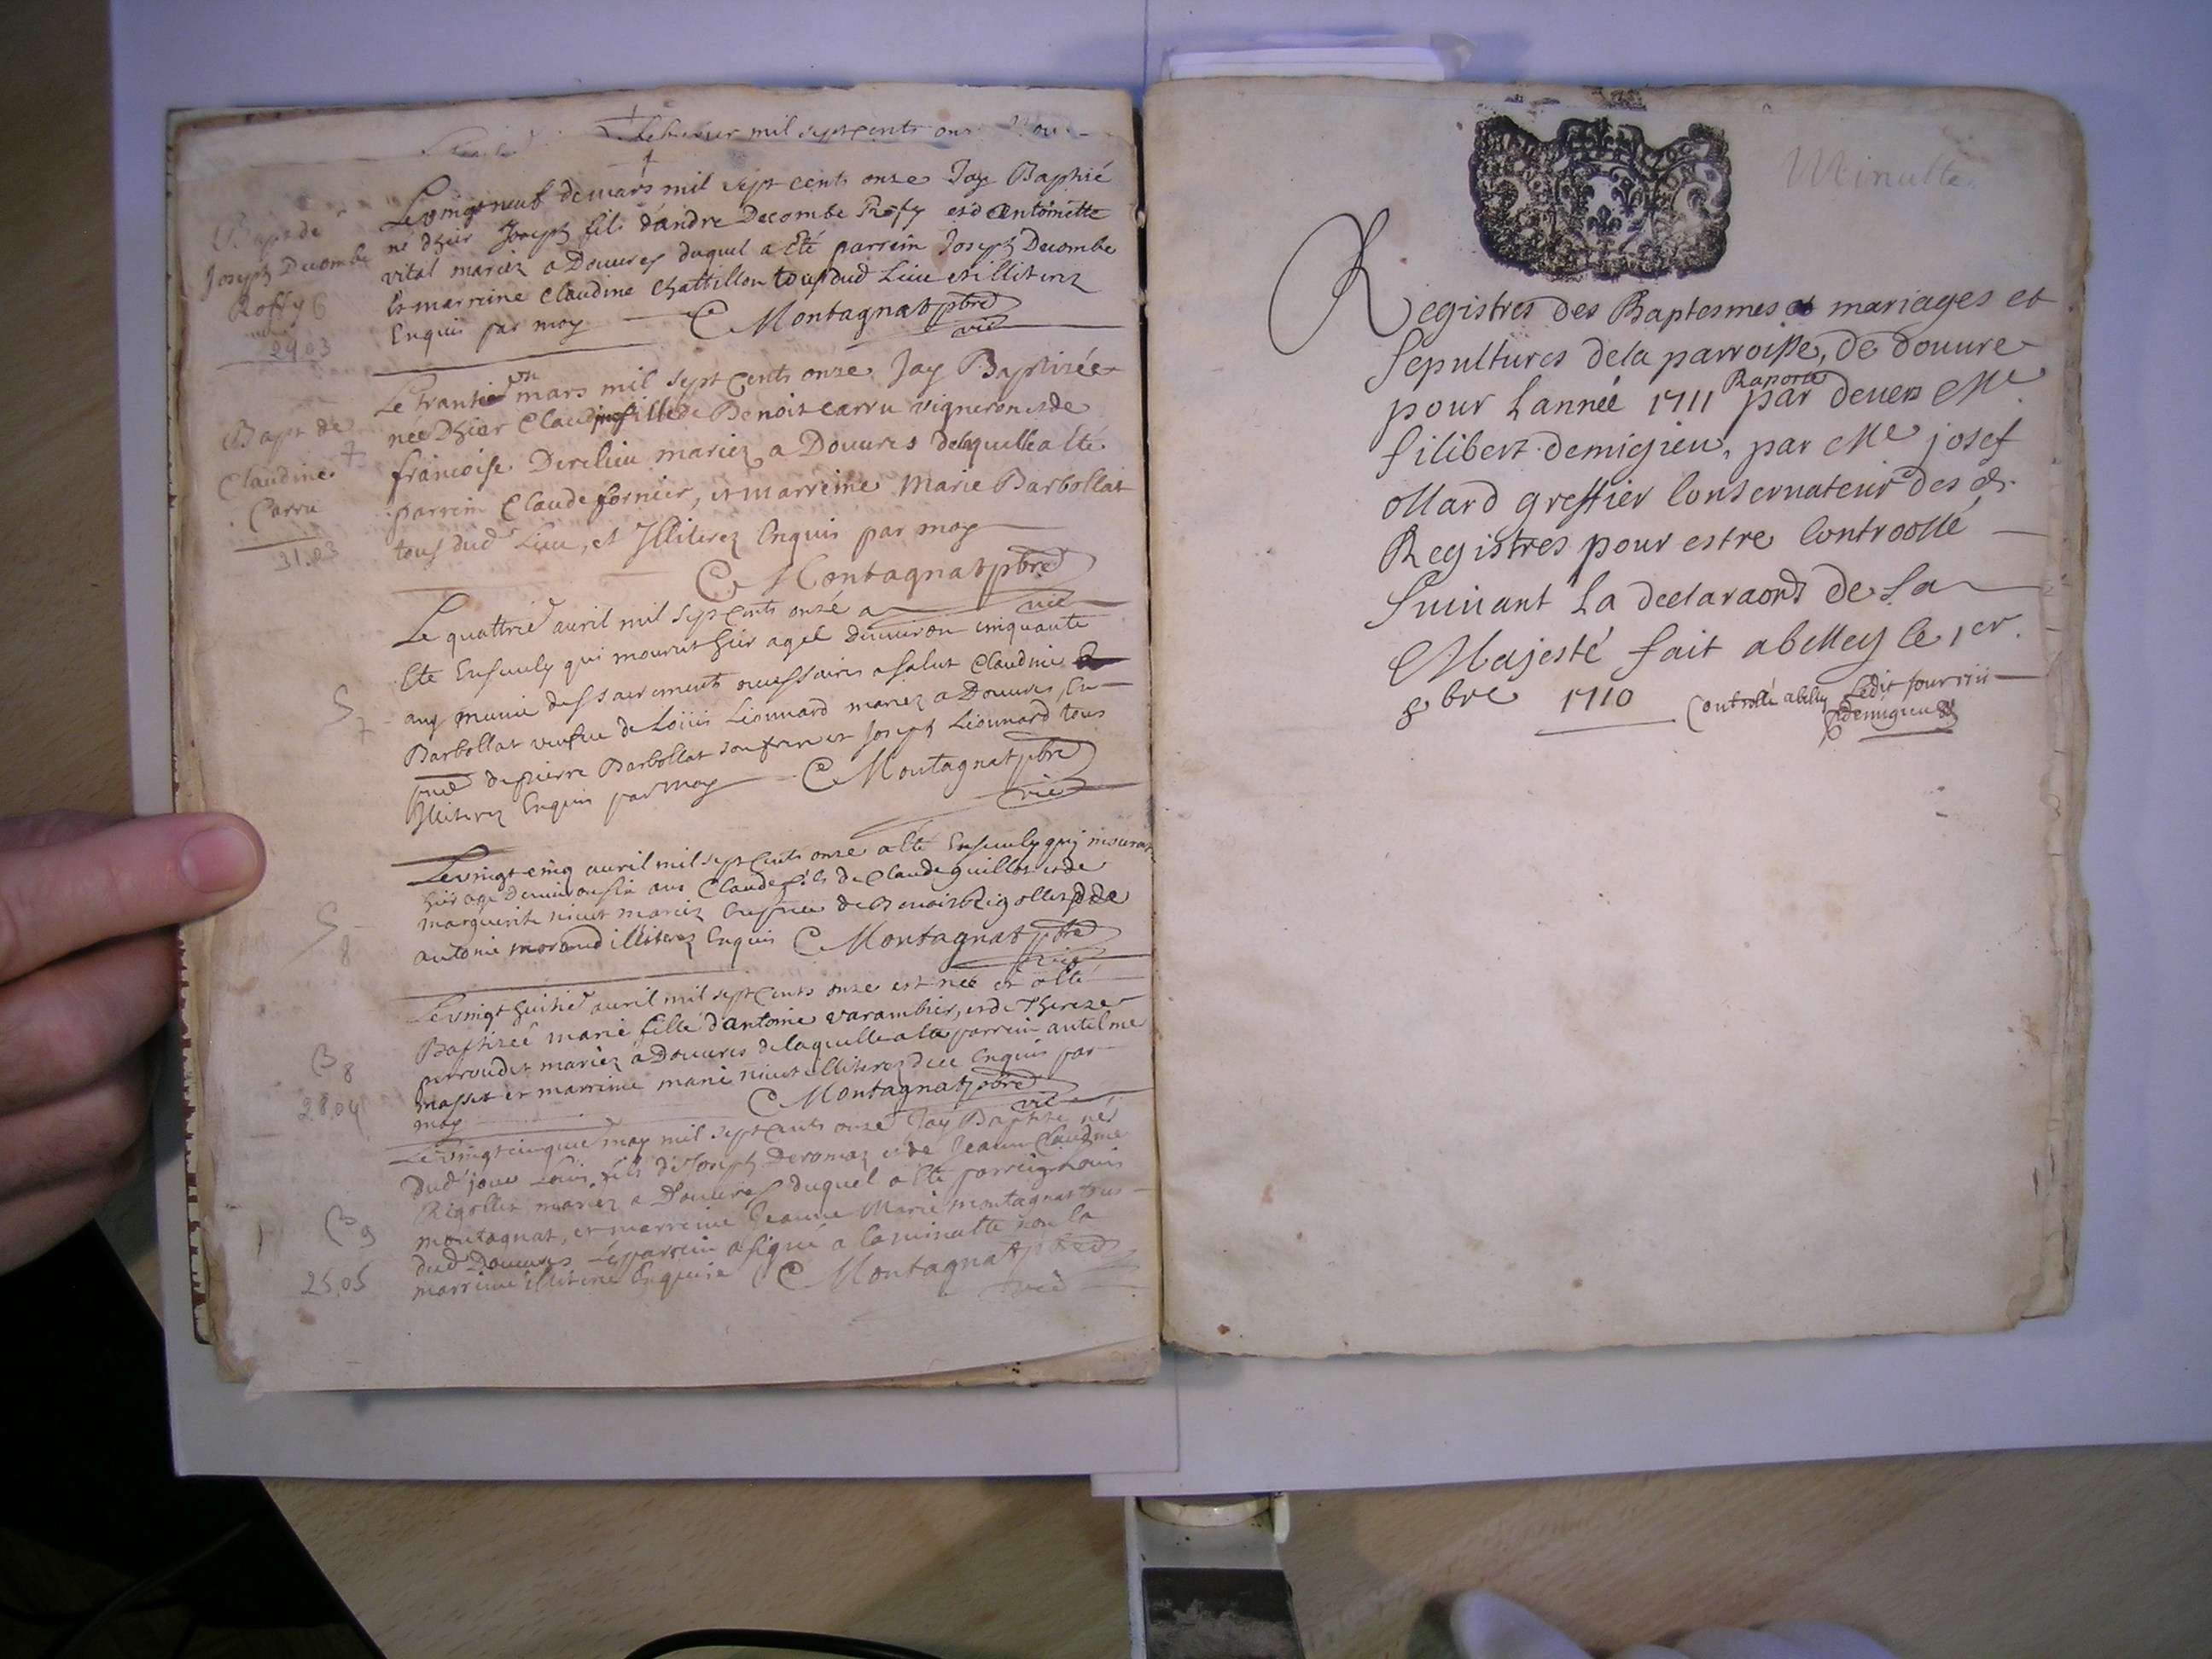 mil sept cents
Bapt de
Joseph Decombe
Roffy 6
29.03
Le vingt neuf de mars mil sept cents onze Jay Baptisé
né d'hier Joseph fils d'andre Decombe Roffy et d'antoinette
vital mariez a Douures duquel a été parrein Joseph Decombe
et marreine Claudine Chattillon tous dud Lieu et illiterez
Enquis par moy C Montagnat pbre
vic
Bapt de
Claudine 7
Carru
31.03
Le trantie un mars mil sept cents onze Jay Baptizée
née D'hier Claudine fille de Benoit carru vigneron et de
francoise Derelieu mariez a Douures de laquelle a été
parrein Claude fornier, et marreine Marie Barbollat
tous dud Lieu, et Jlliterez Enquis par moy
C Montagnat pbre
vic
S
7
Le quattrie auril mil sept cents onze a
été Enseuely qui mourut hier agée denuiron cinquante
ans munie des sacrements necessaires a salut Claudine
Barbollat veufue de Loüis Lionnard mariez a Douures, En
pnce de pierre Barbollat son frere et Joseph Lionnard tous
Jlliterez Enquis par moy C Montagnat pbre
vic
S
8
Le vingt cinq auril mil sept cents onze a été Enseuely qui mourut
hier agé denuiron six ans Claude fils de Claude guillot et de
marguerite niuet mariez En pnce de Benoist Rigollet et de
antoine morand illiterez Enquis C Montagnat pbre
vic
B 8
28.04
Le vingt huitie auril mil sept cents onze est née et a été
Baptizée marie fille d'antoine varambier, et de Thereze
perroudet mariez a Douures de laquelle a été parrein antelme
masset et marreine marie niuet illiterez Enquis par
moy C Montagnat pbre
vic
B 9
25.05
Le vingt cinquie may mil sept cents onze Jay Baptizé né
dud jour Louis fils de Joseph Deromaz et de Jeanne Claudine
Rigollet mariez a Douures duquel a été parrein Louis
montagnat, et marreine Jeanne Marie montagnat tous
dud Douures Le parrein a signé a la minutte non la
marreine illiterée Enquise C Montagnat pbre
vic
Minutte
Registres des Baptesmes et mariages et
Sepultures de la parroisse, de douure
pour Lannée 1711 Raporte par deuers Me
filibert demigieu, par Me josef
ollard greffier Conservateur des d.
Registres pour estre Controollé
Suiuant La declaraond de Sa
Majesté fait a belley le 1er.
8bre 1710 Controllé a belley Ledit jour
Demigieu